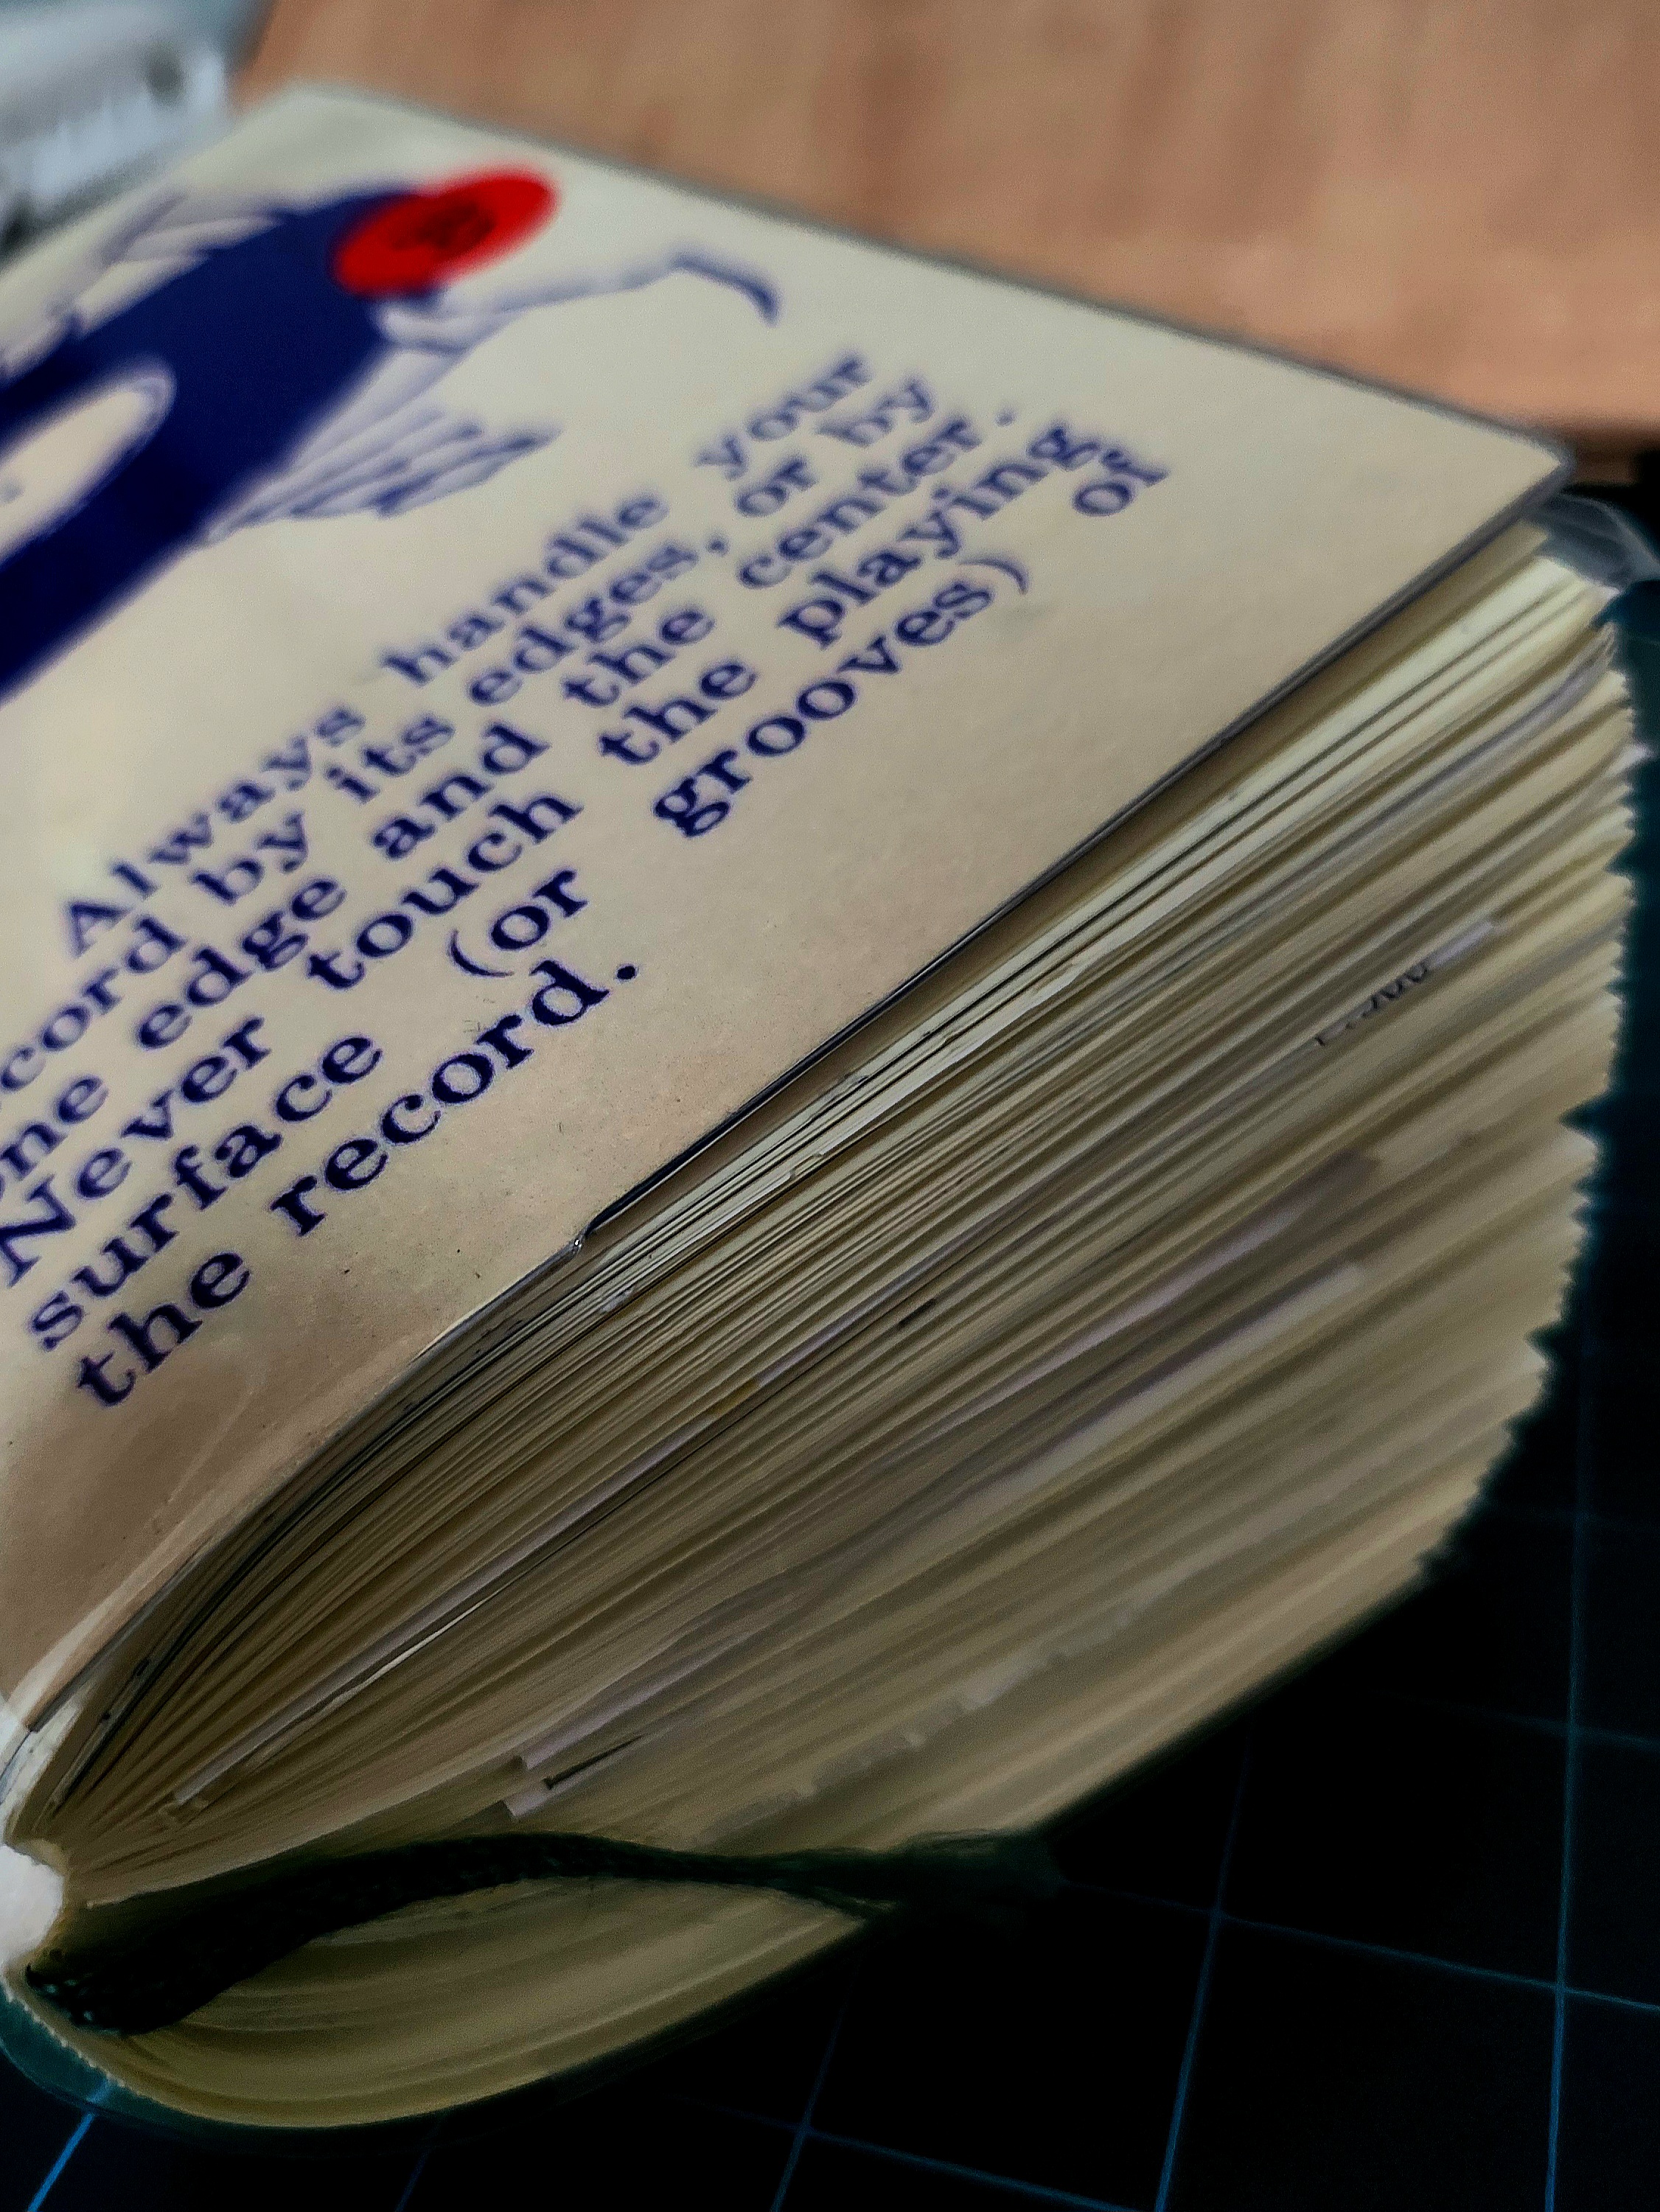 Always handle your
record by its edges, or by
one edge and the center.
Never touch the playing
surface (or grooves) of
the record.